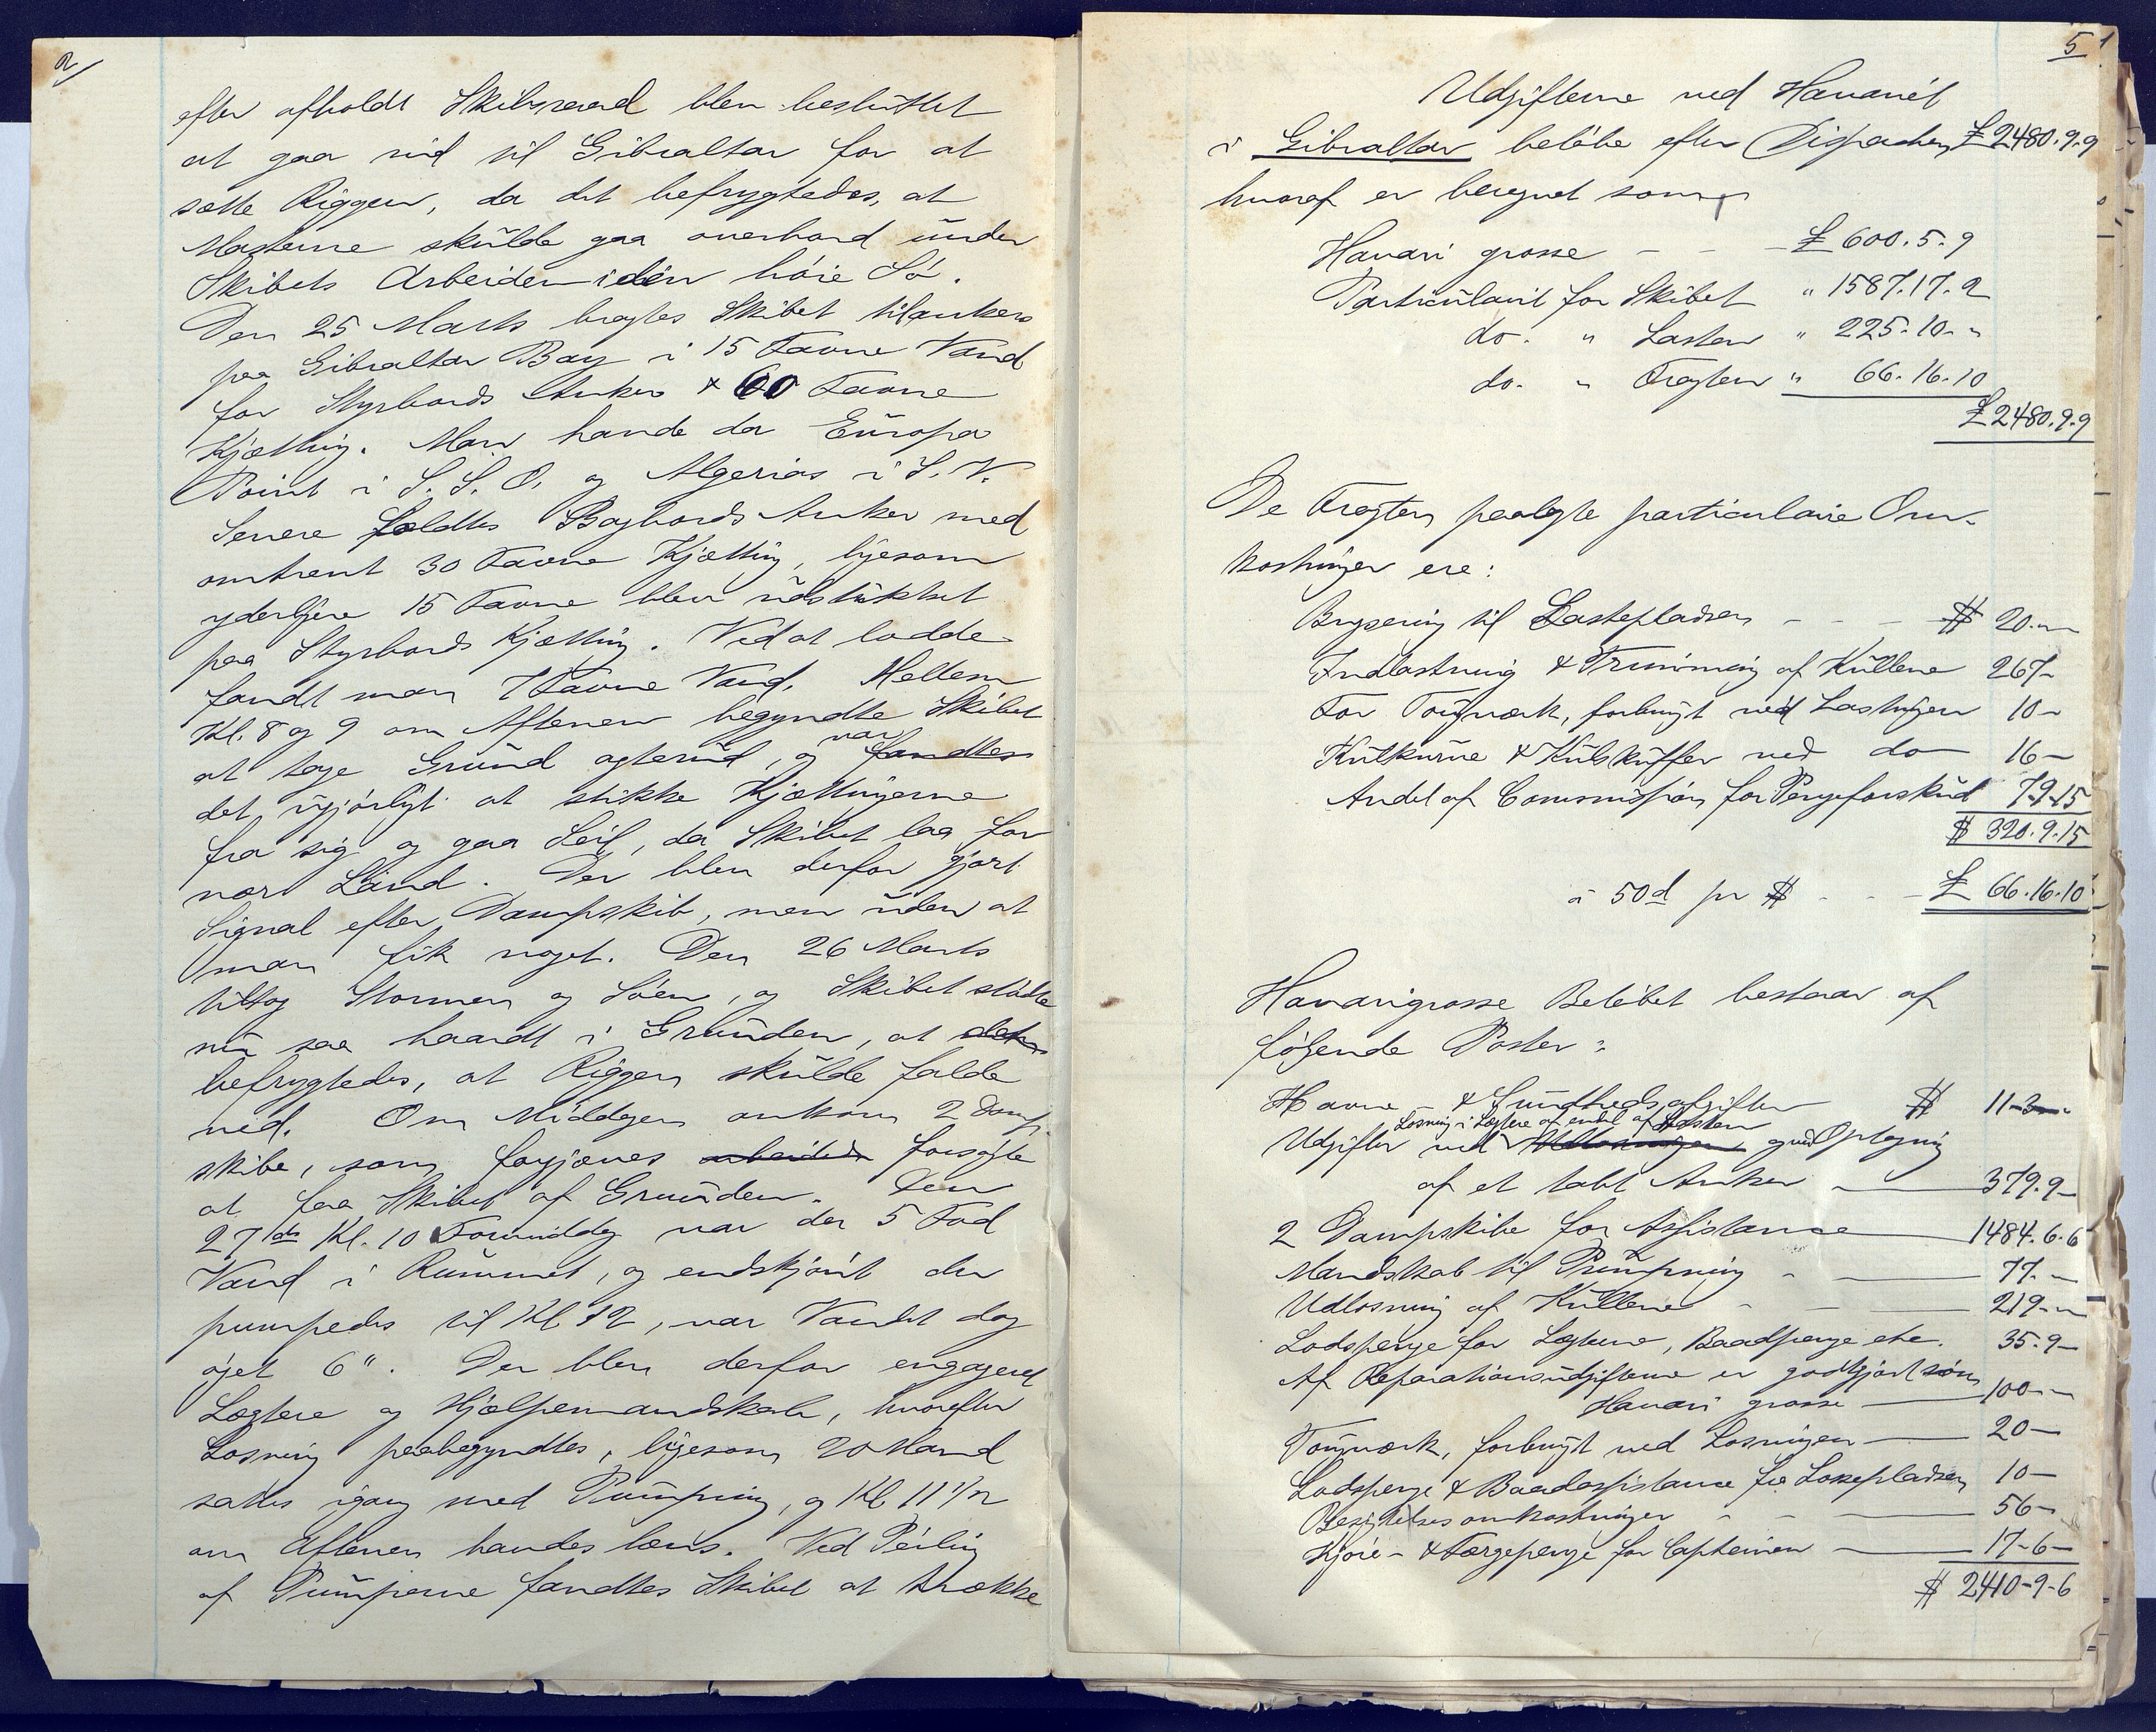 2/
efter afholdt Skibsraad blev besluttet
at gaa ind til Gibraltar for at
sætte Riggen, da det befrygtedes, at
Masterne skulde gaa overbord under
Skibets Arbeiden i den høie Sø.
Den 25 Marts bragtes Skibet tilankers
paa Gibraltar Bay i 15 Favne Vand
for Styrbords Anker & 60 Favne
Kjætting. Man havde da Europa
Point i S. S. O. og Algeriras i S. V.
Senere fældtes Bagbords Anker med
omtrent 30 Favne Kjætting, ligesom
yderligere 15 Favne blev udstukket
paa Styrbords Kjætting. Ved at lodde
fandt man 7 Favne Vand. Mellem
Kl. 8 og 9 om Aftenen begyndte Skibet
at tage Grund agterud, og var fandtes
det ugjørligt at stikke Kjættingerne
fra sig og gaa Seil, da Skibet laa for
nær Land. Der blev derfor gjort
Signal efter Dampskib, men uden at
man fik noget. Den 26 Marts
tiltog Stormen og Søen, og Skibet stødte
nu saa haardt i Grunden, at det
befrygtedes, at Riggen skulde falde
ned. Om Middagen ankom 2 Damp-
skibe, som forgjæves arbeidede forsøgte
at faa Skibet af Grunden. Den
27de Kl. 10 Formiddag var der 5 Fod
Vand i Rummet, og endskjønt der
pumpedes til Kl 12, var Vandet dog
øget 6". Der blev derfor engageret
Lægtere og Hjælpemandskab, hvorefter
Losning paabegyndtes, ligesom 20 Mand
sattes igang med Pumpning, og Kl 11 1/2
om Aftenen havdes læns. Ved Peiling
af Pumperne fandtes Skibet at trække
5
Udgifterne ved Havariet
i Gibraltar beløbe efter Dispachen £ 2480.9.9
hvoraf er beregnet som
Havari grosse - - - £ 600.5.9
Particulairt for Skibet " 1587.17.2
do. " Lasten " 225.10. "
do. " Fragten " 66.16.10
£ 2480.9.9
De Fragten paalagte particulaire Om-
kostninger ere:
Bugsering til Lastepladsen - - - $ 20. "
Indlastning & Trimming af Kullene 267-
For Tougværk, forbrugt ved Lastningen 10-
Kulkurve & Kulskuffer ved do 16-
Andel af Commission for Pengeforskud 7.9.15
$ 320.9.15
a 50d pr $ - - - £ 66.16.10
Havarigrosse Beløbet bestaar af
følgende Poster:
Havne & Sundhedsafgifter $ 11-3-
Losning i Lægtere af endel af Lasten
Udgifter ved Udlosningen og ved Optagning
af et tabt Anker 379.9-
2 Dampskibe for Assistance 1484.6.6
Mandskab til Pumpning - 77. "
Udlosning af Kullene - - 219. "
Lodspenge for Lægterne, Baadpenge etc. 35.9-
Af Reparationsudgifterne er godtgjort som
Havari grosse 100. "
Tougværk, forbrugt ved Losningen 20-
Lodspenge & Baadassistance fra Lossepladsen 10-
Besigtelsesomkostninger - - 56-
Kjøre- & Færgepenge for Capteinen 17-6-
$ 2410-9-6